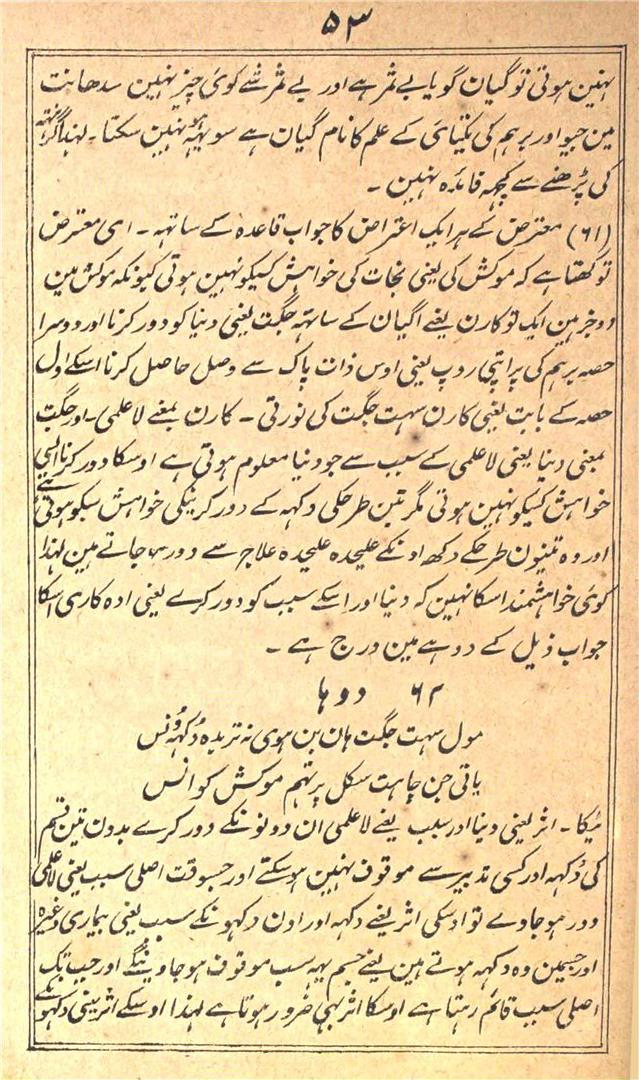 ۵۳
نہین ہوتی تو گیان گویا بے ثمر ہے اور بے ثمر شے کوئ چیز نہین سدھانت
مین جیو اور برہم کی یکتیائ کے علم کا نام گیان ہے سو یہہ ہو نہین سکتا۔ لہذا گرنتہہ
کی پڑھنے سے کچہہ فائدہ نہین ۔
(۶۱) معترض کے ہر ایک اعتراض کا جواب قاعدہ کے ساتہہ ۔ اسی معترض
تو کہتا ہے کہ موکش کی یعنی نجات کی خواہش کسیکو نہین ہوتی کیونکہ موکش مین
دو جز ہین ایک تو کارن یعنے اگیان کے ساتہہ جگت یعنی دنیا کو دور کرنا اور دوسرا
حصہ برہم کی پراپتی روپ یعنی اوس ذات پاک سے وصل حاصل کرنا اسکے اول
حصہ کے بابت یعنی کارن سہت جگت کی نورتی ۔ کارن بمعنے لا علمی ۔ اور جگت
بمعنی دنیا یعنی لا علمی کے سبب سے جو دنیا معلوم ہوتی ہے اوسکا دور کرنا ایسی
خواہش کسیکو نہین ہوتی مگر تین طرحکی دکہہ کے دور کرنیکی خواہش سبکو ہوتی ہے
اور وہ تینون طرحکے دکھ اونکے علیحدہ علیحدہ علاج سے دور ہو جاتے ہین لہذا
کوئ خواہشمند اسکا نہین کہ دنیا اور اسکے سبب کو دور کرے یعنی ادہ کاری اسکا
جواب ذیل کے دوہے مین درج ہے ۔
۶۲ دوہا
مول سہت جگت ہان بن ہوی نہ تربدہ دُکہہ دُونس
یاتی جن چاہت سکل پرتہم موکش کو انس
ٹیکا ۔ اثر یعنی دنیا اور سبب یعنے لا علمی ان دونونکے دور کرے بدون تین قسم
کی دُکہہ اور کسی تدبیر سے موقوف نہین ہو سکتے اور جسوقت اصلی سبب یعنی لا علمی
دور ہو جاوے تو اوسکی اثر یعنے دکہہ اور اون دکہونکے سبب یعنی بیماری وغیرہ
اور جسمین وہ دکہہ ہوتے ہین یعنے جسم یہہ سب موقوف ہو جاوینگے اور جب تک
اصلی سبب قائم رہتا ہے اوسکا اثر بہی ضرور ہوتا ہے لہذا اوسکے اثر یعنی دکہونکے